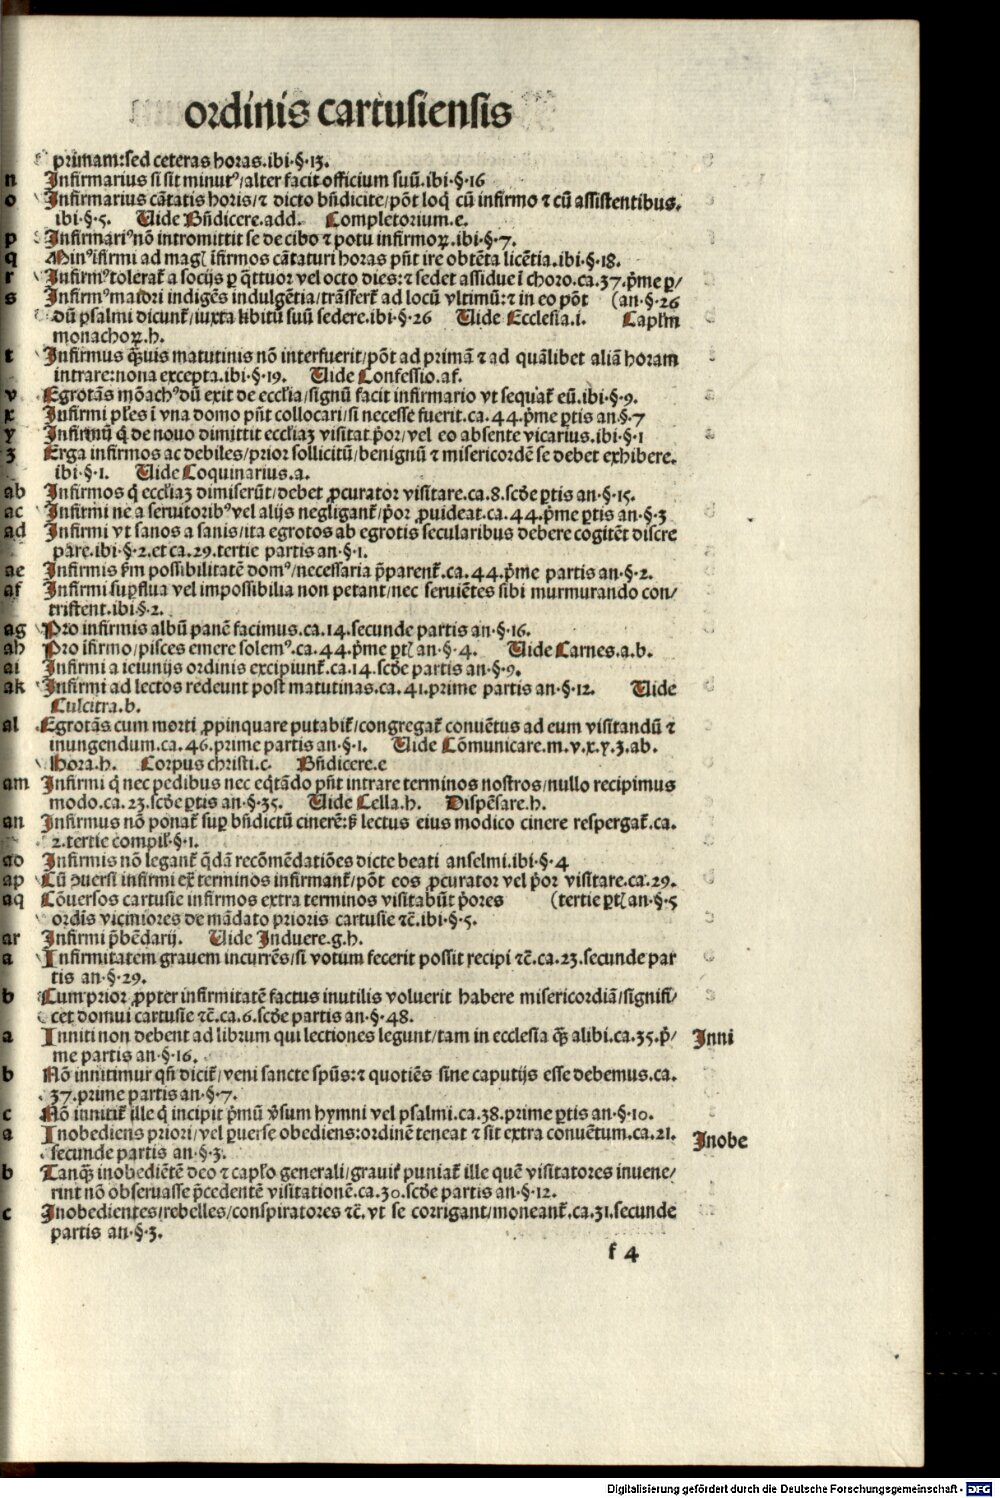 ordinis cartusiensis
primam:sed ceteras horas.ibi·§·13.
n Infirmarius si sit minutꝰ/alter facit officium suū.ibi·§·16
o Infirmarius cātatis horis/⁊ dicto bn̄dicite/pōt loq̄ cū infirmo ⁊ cū assistentibus.
ibi·§·5. Uide Bn̄dicere.add. Completorium.e.
p Infirmariꝰ nō intromittit se de cibo ⁊ potu infirmoꝝ.ibi·§·7.
q Minꝰ ifirmi ad magꝭ ifirmos cātaturi horas pn̄t ire obtēta licētia.ibi·§·18.
r Infirmꝰ toleraẗ a socijs ꝑ q̄ttuor vel octo dies:⁊ sedet assidue ī choro.ca.37.p̄me ꝑ/
s Infirmꝰ maiori indigēs indulgētia/trāsfert̄ ad locū vltimū:⁊ in eo pōt (an·§·26
dū psalmi dicunt̄/iuxta libitū suū sedere.ibi·§·26 Uide Ecclesia.i. Caplm̄
monachoꝝ.h.
t Infirmus q̄uis matutinis nō interfuerit/pōt ad primā ⁊ ad quālibet aliā horam
intrare:nona excepta.ibi·§·19. Uide Confessio.af.
v Egrotās mōachꝰ dū exit de eccl̄ia/signū facit infirmario vt sequat̄ eū.ibi·§·9.
x Infirmi pl̄es ī vna domo pn̄t collocari/si necesse fuerit.ca.44.p̄me ꝑtis an·§·7
y Infirmū q̄ de nouo dimittit eccl̄iaꝫ visitat p̄or/vel eo absente vicarius.ibi·§·1
ꝫ Erga infirmos ac debiles/prior sollicitū/benignū ⁊ misericordē se debet exhibere.
ibi·§·1. Uide Coquinarius.a.
ab Infirmos q̄ eccl̄iaꝫ dimiserūt/debet ꝓcurator visitare.ca.8.scd̄e ꝑtis an·§·15.
ac Infirmi ne a seruitoribꝰ vel alijs negligant̄/p̄or ꝓuideat.ca.44.p̄me ꝑtis an·§·3
ad Infirmi vt sanos a sanis/ita egrotos ab egrotis secularibus debere cogitēt discre
pare.ibi·§·2.et ca.29.tertie partis an·§·1.
ae Infirmis s̄m possibilitatē domꝰ/necessaria p̄parent̄.ca.44.p̄me partis an·§·2.
af Infirmi suꝑflua vel impossibilia non petant/nec seruiētes sibi murmurando con/
tristent.ibi·§·2.
ag Pro infirmis albū panē facimus.ca.14.secunde partis an·§·16.
ah Pro ifirmo/pisces emere solemꝰ.ca.44.p̄me ꝑtꝭ an·§·4. Uide Carnes.a.b.
ai Infirmi a ieiunijs ordinis excipiunt̄.ca.14.scd̄e partis an·§·9.
ak Infirmi ad lectos redeunt post matutinas.ca.41.prime partis an·§·12. Uide
Culcitra.b.
al Egrotās cum morti ꝓpinquare putabit̄/congregat̄ conuētus ad eum visitandū ⁊
inungendum.ca.46.prime partis an·§·1. Uide Cōmunicare.m.v.x.y.ꝫ.ab.
Hora.h. Corpus christi.c. Bn̄dicere.e
am Infirmi q̄ nec pedibus nec eq̄tādo pn̄t intrare terminos nostros/nullo recipimus
modo.ca.23.scd̄e ꝑtis an·§·35. Uide Cella.h. Dispēsare.h.
an Infirmus nō ponat̄ suꝑ bn̄dictū cinerē:sꝫ lectus eius modico cinere respergat̄.ca.
2.tertie compil̄·§·1.
ao Infirmis nō legant̄ q̄dā recōmēdatiōes dicte beati anselmi.ibi·§·4
ap Cū ꝯuersi infirmi ex̄ terminos infirmant̄/pōt eos ꝓcurator vel p̄or visitare.ca.29.
aq Cōuersos cartusie infirmos extra terminos visitabūt p̄ores (tertie ꝑtꝭ an·§·5
ordīs viciniores de mādato prioris cartusie ⁊c̄.ibi·§·5.
ar Infirmi p̄bēdarij. Uide Induere.g.h.
a Infirmitatem grauem incurrēs/si votum fecerit possit recipi ⁊c̄.ca.23.secunde par
tis an·§·29.
b Cum prior ꝓpter infirmitatē factus inutilis voluerit habere misericordiā/signifi/
cet domui cartusie ⁊c̄.ca.6.scd̄e partis an·§·48.
a Inniti non debent ad librum qui lectiones legunt/tam in ecclesia q̄ꝫ alibi.ca.35.p̄/ Inni
me partis an·§·16.
b Nō innitimur qn̄ dicit̄/veni sancte sp̄us:⁊ quotiēs sine caputijs esse debemus.ca.
37.prime partis an·§·7.
c Nō innitit̄ ille q̄ incipit p̄mū v̄sum hymni vel psalmi.ca.38.prime ꝑtis an·§·10.
a Inobediens priori/vel ꝑuerse obediens:ordinē teneat ⁊ sit extra conuētum.ca.21. Inobe
secunde partis an·§·3.
b Tanq̄ꝫ inobediētē deo ⁊ caplo generali/grauit̄ puniat̄ ille quē visitatores inuene/
rint nō obseruasse p̄cedentē visitationē.ca.30.scd̄e partis an·§·12.
c Inobedientes/rebelles/conspiratores ⁊c̄.vt se corrigant/moneant̄.ca.31.secunde
partis an·§·3.
f 4
Digitalisierung gefördert durch die Deutsche Forschungsgemeinschaft - DFG